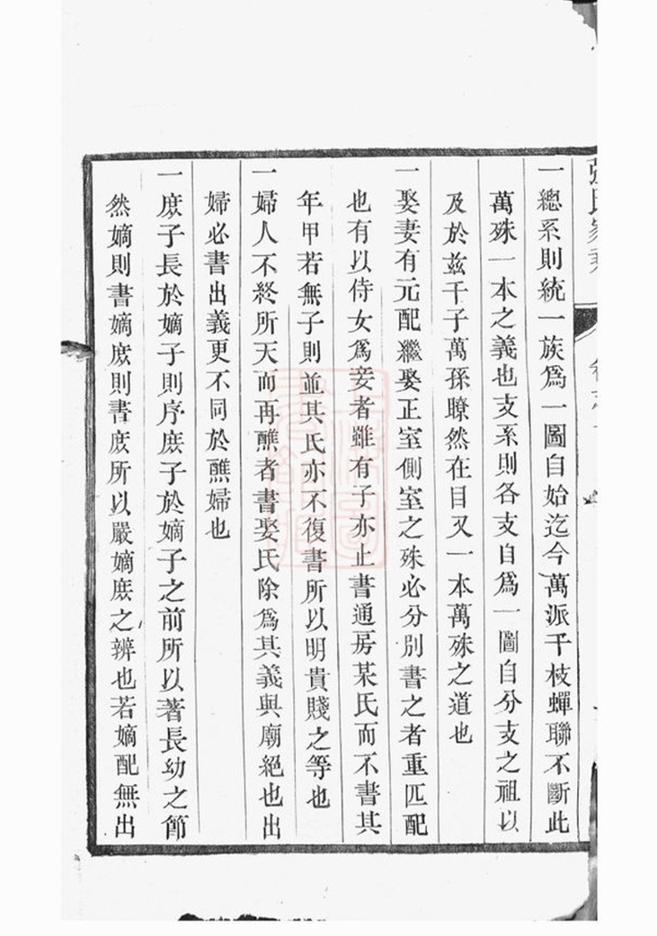 張氏家乘
一總系則統一族爲一圖自始迄今萬派千枝蟬聯不斷此
萬殊一本之義也支系則各支自爲一圖自分支之祖以
及於兹千子萬孫暸然在目又一本萬殊之道也
一娶妻有元配繼娶正室側室之殊必分别書之者重匹配
也有以侍女爲妾者雖有子亦止書通房某氏而不書其
年甲若無子則並其氏亦不復書所以明貴賤之等也
一婦人不終所天而再醮者書娶氏除爲其義與廟絕也出
婦必書出義更不同於醮婦也
一庶子長於嫡子則序庶子於嫡子之前所以著長幼之節
然嫡則書嫡庶則書庶所以嚴嫡庶之辨也若嫡配無出